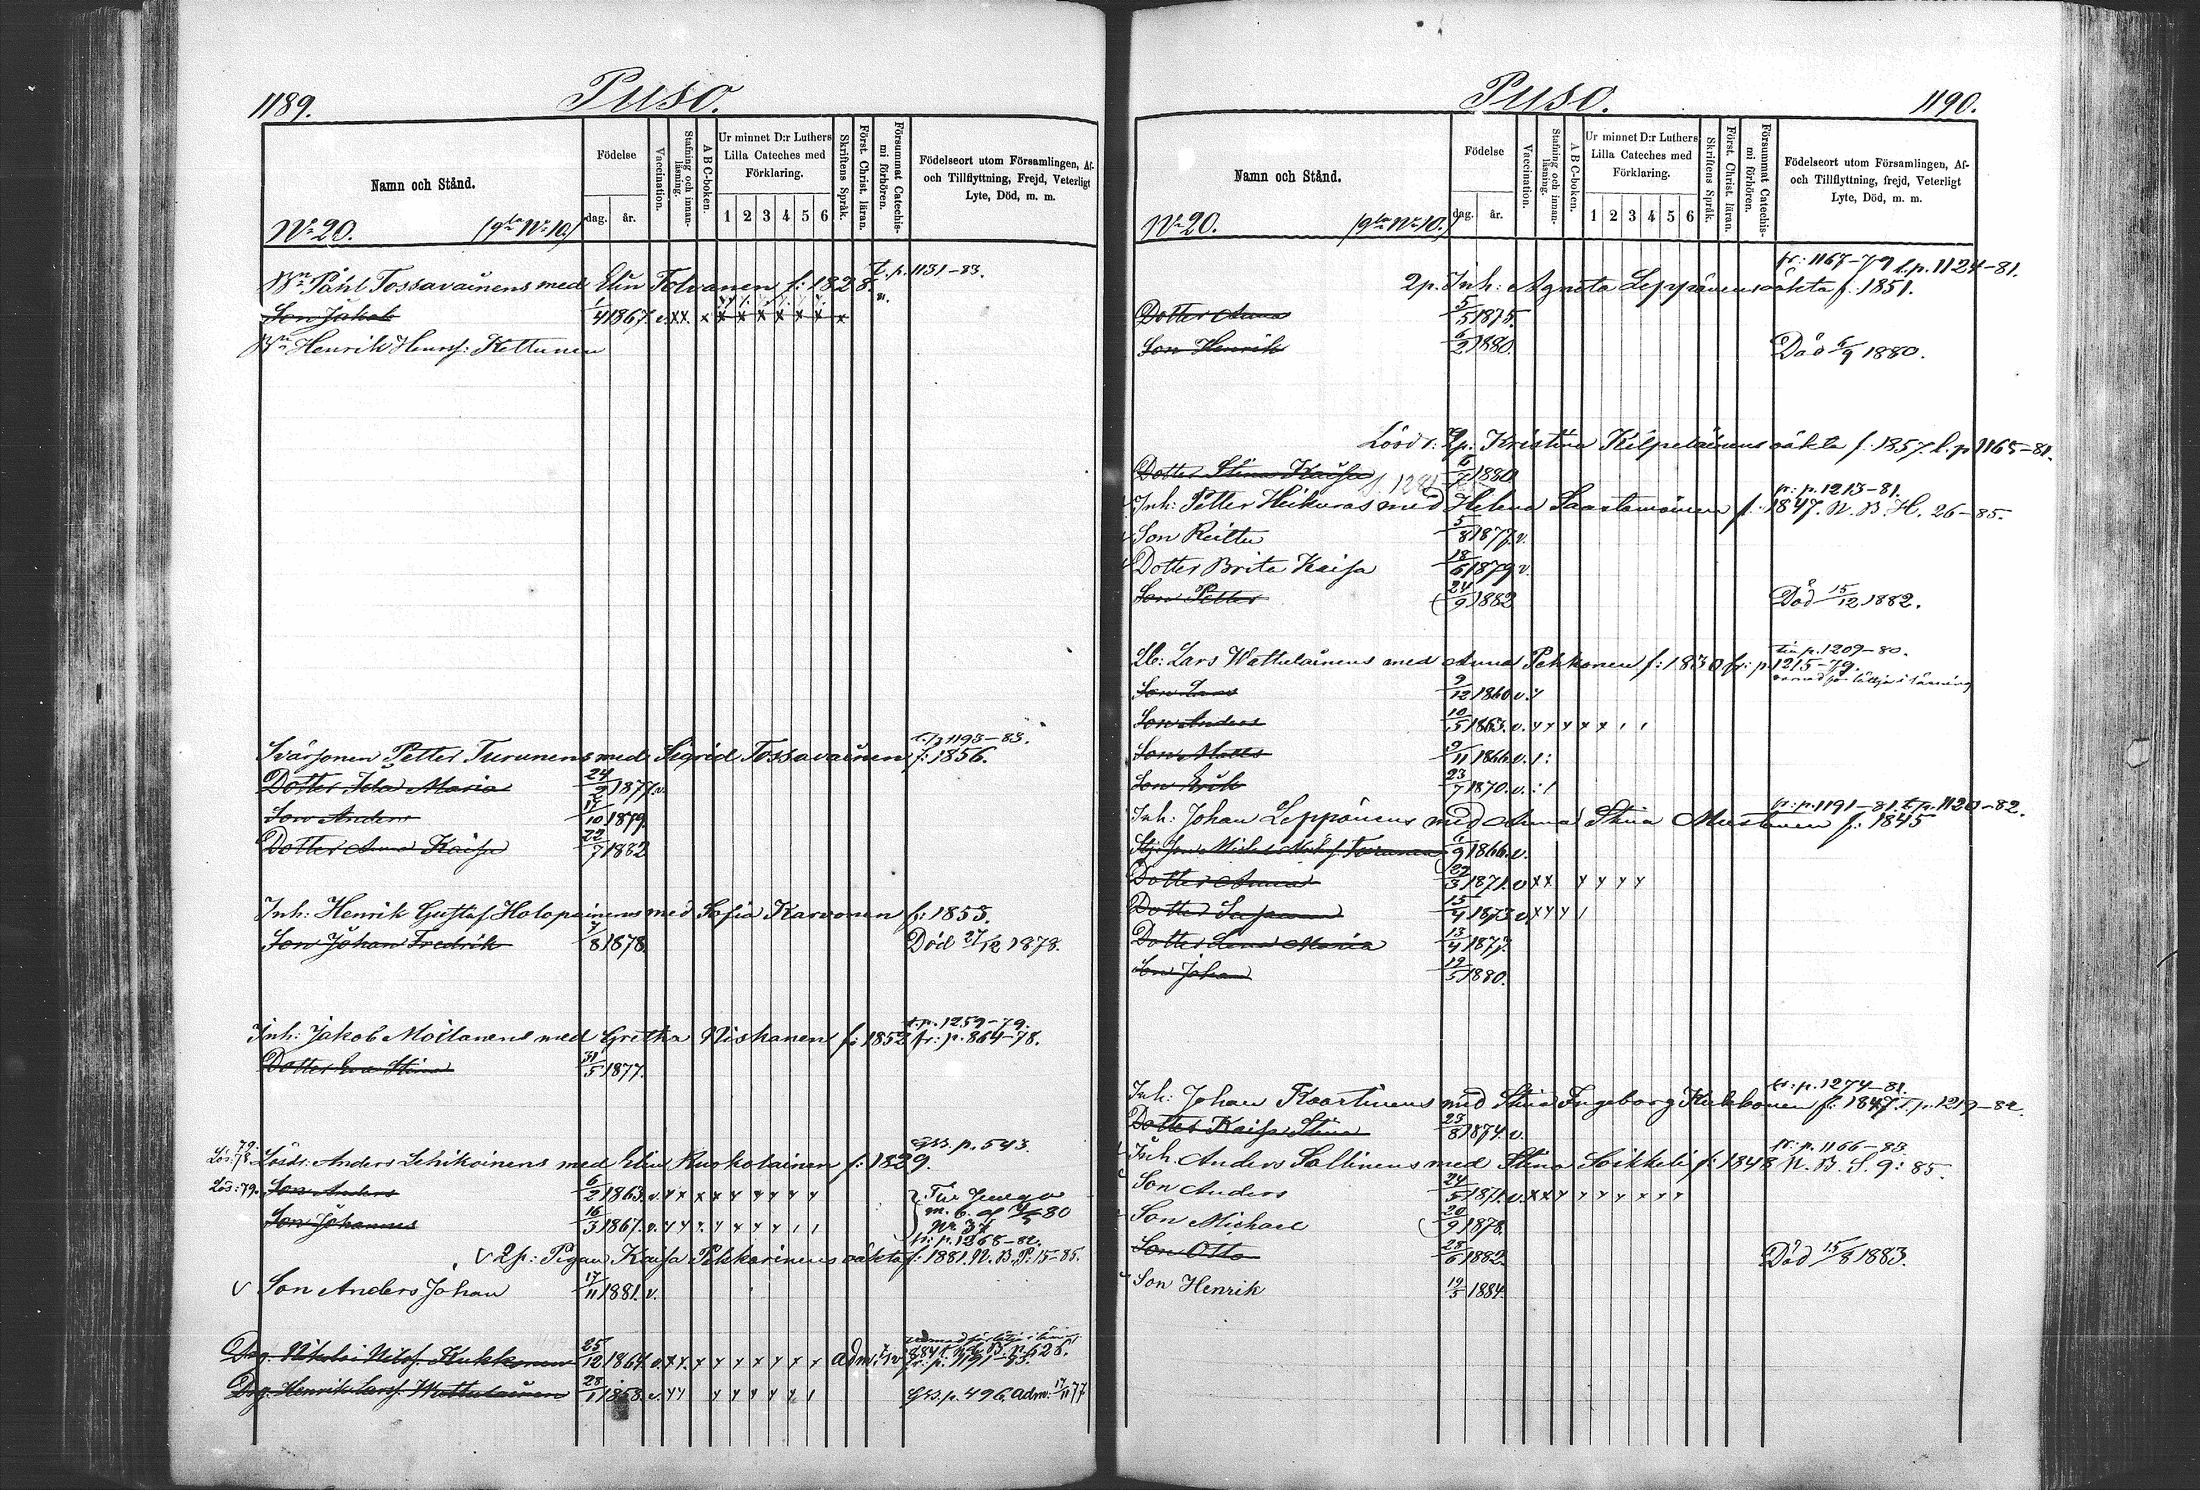 1189.
Puso.
Namn och Stånd.
Födelse
dag. år.
Vaccination.
Stafning och innan-läsning.
A B C-boken.
Ur minnet D:r Luthers
Lilla Cateches med
Förklaring.
1 2 3 4 5 6
Skriftens Språk.
Först. Christ. läran.
Försummat Catechis-mi förhören.
Födelseort utom Församlingen, Af-
och Tillflyttning, Frejd, Veterligt
Lyte, Död, m. m.
No 20. No 10.)
t. p. 1131-83.
Påhl Tossavainens med Elin Tolvanen f: 1828.
Son Jakob 1/4 1867. v. xx x x x x x x x x
Henrik Henrsf: Kettunen
t. p 1193-83.
Svärsonen Petter Turunens med Sigrid Tossavainen f: 1856.
Dotter Ida Maria 24/2 1877 v.
Son Anders 17/10 1879
Dotter Anna Kaisa 22/7 1882
Inh: Henrik Gustaf Holopainens med Sofia Karvonen f: 1853.
Son Johan Fredrik 7/8 1878 Död 27/12 1878.
t. p. 1259-79.
Inh: Jakob Moilanens med Gretha Niskanen f: 1852 fr: p. 864-78.
Dotter Eva Stina 31/5 1877.
Gss. p. 543.
Lösdr: Anders Lehikoinens med Elin Ruokolainen f: 1829.
Lös: 79. Son Anders 6/2 1863. v.
Son Johannes 16/3 1867. v.
m. b. af
No 37
fr: p. 1268-82.
v 2p: Pigan Kaisa Pekkarinens oäkta f: 1881. N. B. P. 15-85.
v Son Anders Johan 17/11 1881. v.
Drg. Nikolai Nilsf. Kukkonen 25/12 1864 v. xx.
fr. p. 1191-83.
Drg. Henrik Larsf. Wattulainen 28/1 1858. v. Gss. p. 496. adm: 17/11 77
Puso.
1190.
Namn och Stånd.
Födelse
dag. år.
Vaccination.
Stafning och innan-läsning.
A B C-boken.
Ur minnet D:r Luthers
Lilla Cateches med
Förklaring.
1 2 3 4 5 6
Skriftens Språk.
Först. Christ. läran.
Försummat Catechis-mi förhören.
Födelseort utom Församlingen, Af-
och Tillflyttning, frejd, Veterligt
Lyte, Död, m. m.
No 20. No 10.)
fr: 1167-79 t. p. 1124-81.
2p. Inh: Agneta Leppänens oäkta f. 1851.
Dotter Anna 5/5 1875.
Son Henrik 6/2 1880. Död 6/9 1880.
Lösdr: 2p. Kristina Kilpeläinens oäkta f. 1857. t. p 1165-81.
Dotter Stina Kaisa 6/7 1880
fr: p. 1213-81.
Inh: Petter Heikuras med Helena Saastamoinen f. 1847. N. B. H. 26-85.
Son Reittu 5/8 1877. v.
Dotter Brita Kaisa 18/6 1879 v.
Son Petter 24/9 1882 Död 15/12 1882.
p. 1209-80.
Lars Wattulainens med Anna Pekkonen f: 1830 fr: p. 1215-79.
Son Lars 9/12 1860. v.
Son Anders 10/5 1863. v.
Son Matts 9/11 1866. v.
Son Erik 23/7 1870. v.
fr: p. 1191-81. t. p. 1120-82.
Inh: Johan Leppänens med Anna Stina Mustonen f: 1845
1/9 1866. v.
Dotter Anna 22/3 1871. v
Dotter Susanna 15/4 1873 v.
Dotter Lena Maria 13/4 1877.
Son Johan 19/5 1880.
fr: p. 1274-81.
Inh: Johan Kaartinens med Stina Ingeborg Kukkonen f: 1847. t. p. 1219-82.
Dotter Kaisa Stina 23/8 1874. v.
fr: p. 1166-83
Inh. Anders Sallinens med Stina Soikkeli f: 1848 N. B. S. 9: 85.
Son Anders 24/5 1871. v.
Son Michael 20/9 1878.
Son Otto 28/6 1882. Död 15/8 1883.
Son Henrik 19/5 1884.